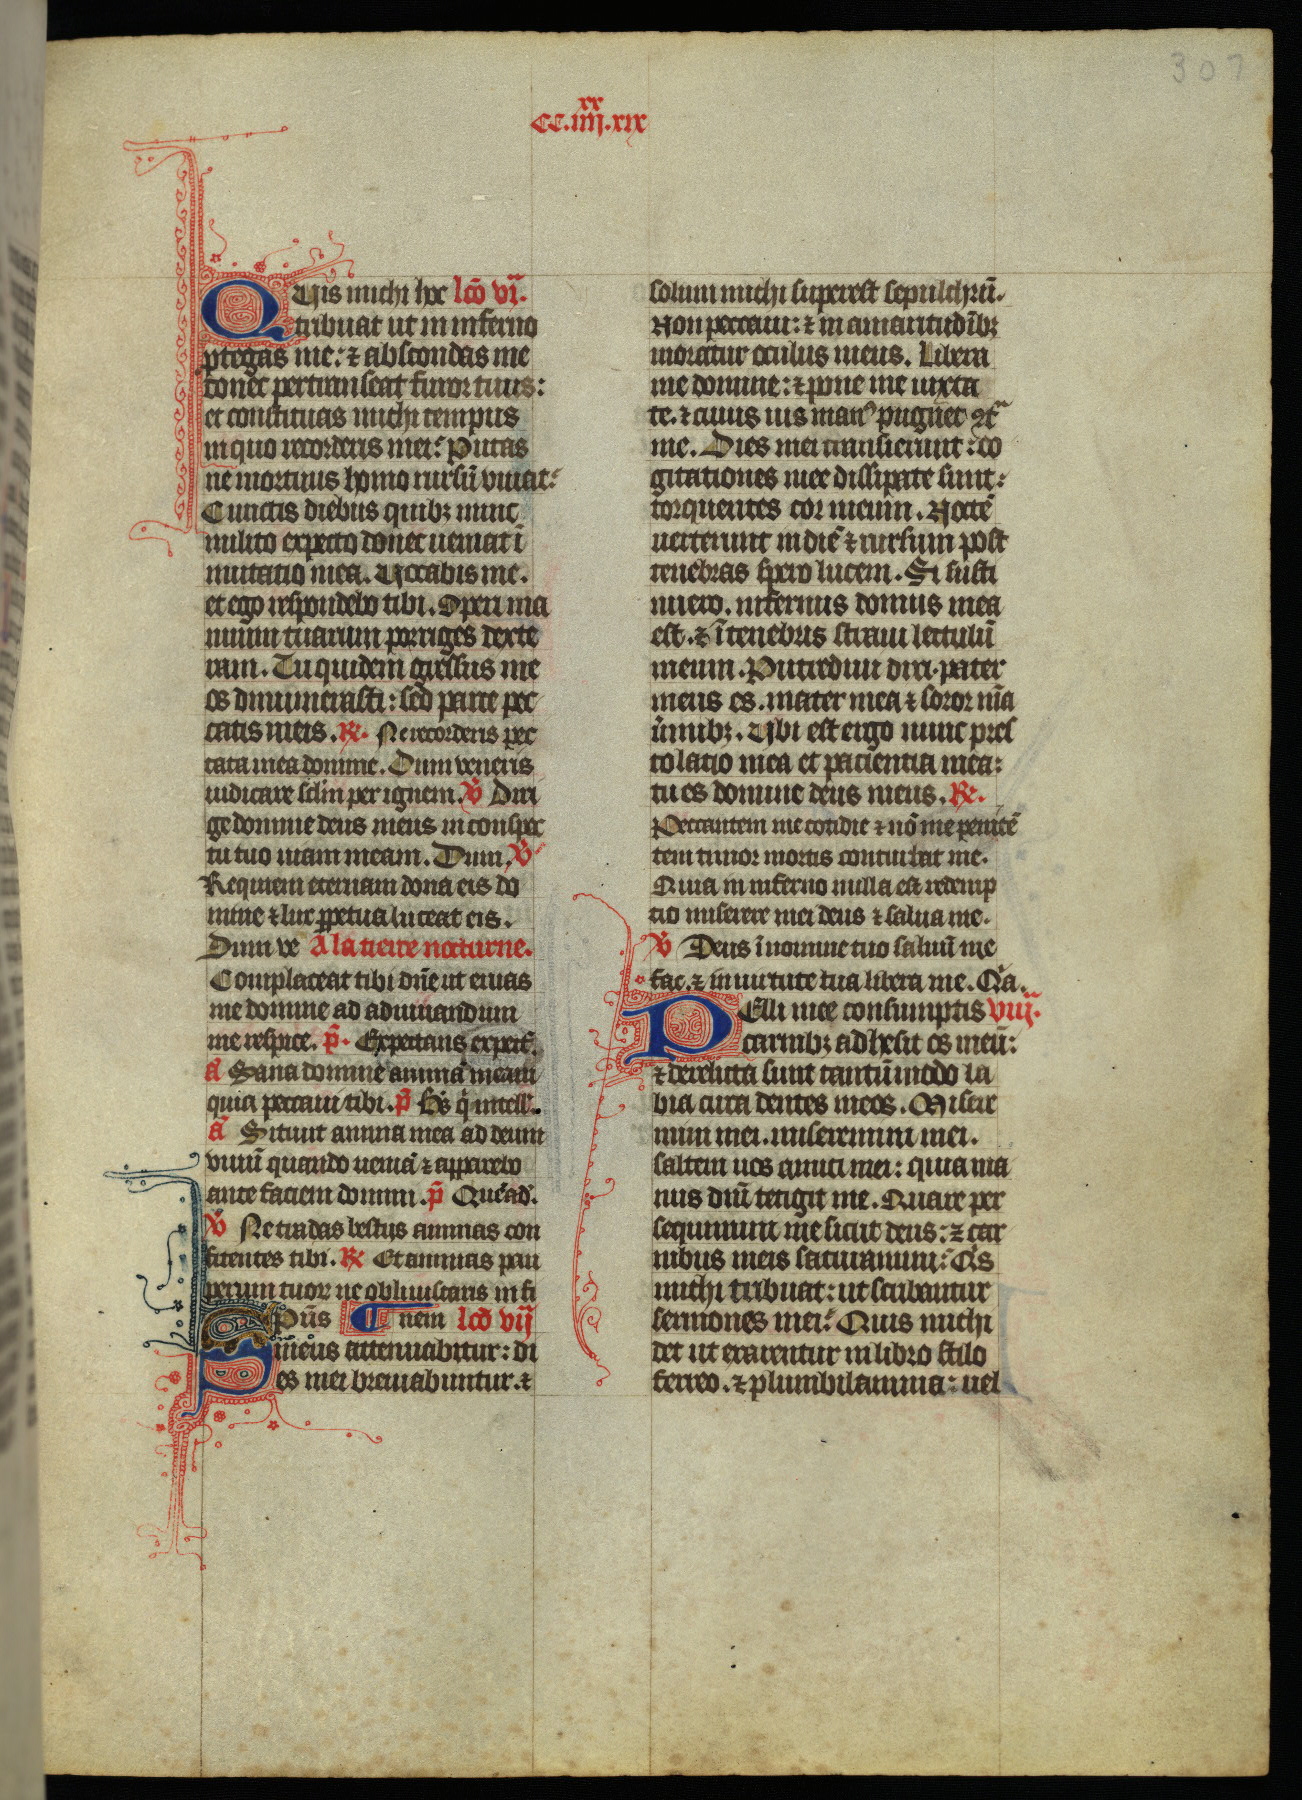 307
xx
CC.iiij.xix
QUis michi hoc lcō vj.
tribuat ut in inferno
ptegas me: ⁊ abscondas me
donec pertranseat furor tuus:
et constituas michi tempus
in quo recorderis mei: Putas
ne mortuus homo rursū vivat:
Cunctis diebus quibꝫ nunc
milito expecto donec ueniat ī
mutatio mea. Uocabis me.
et ego respondebo tibi. Operi ma
nuum tuarum porriges dexte
ram. Tu quidem gressus me
os dinumerasti: sed parce pec
catis meis. ℟. Ne recorderis pec
cata mea domine. Dum veneris
iudicare sclm per ignem. ℣ Diri
ge domine deus meus in conspec
tu tuo uiam meam. Dum. ℣
Requiem eternam dona eis do
mine ⁊ lux ꝑpetua luceat eis.
Dum ve A la tierce nocturne.
Complaceat tibi dn̄e ut eruas
me domine ad adiuuandum
me respice. p̄. Expectans expect̄.
ā Sana domine animā meam
quia peccaui tibi. p̄ Bt̄s q̄ intell.
ā Sitiuit anima mea ad deum
viuū quando ueniā ⁊ apparebo
ante faciem domini. p̄ Quēad.
℣ Ne tradas bestijs animas con
fitentes tibi. ℟ Et animas pau
perum tuoꝝ ne obliuiscaris in fi
Spūs nem lcō vij
meus attenuabitur: di
es mei breuiabuntur. ⁊
solum michi superest sepulchrū.
Non peccaui: ⁊ in amaritudībꝫ
moratur oculus meus. Libera
me domine: ⁊ pone me iuxta
te. ⁊ cuius uis manꝰ pugnet 9t̄
me. Dies mei transierunt: co
gitationes mee dissipate sunt:
torquentes cor meum. Noctē
uerterunt in diē ⁊ rursum post
tenebras spero lucem. Si susti
nuero. infernus domus mea
est. ⁊ ī tenebris straui lectulū
meum. Putredini dixi. pater
meus es. mater mea ⁊ soror mā
ūmibꝫ. Ubi est ergo nunc pres
tolatio mea et paciencia mea:
tu es domine deus meus. ℟.
Peccantem me cotidie ⁊ nō me penitē
tem timor mortis conturbat me.
Quia in inferno nulla est redemp
tio miserere mei deus ⁊ salua me.
℣ Deus ī nomine tuo saluū me
fac. ⁊ in uirtute tua libera me. Qa.
PElli mee consumptis viij.
carnibꝫ adhesit os meū:
⁊ derelicta sunt tantūmodo la
bia circa dentes meos. Misere
mini mei. miseremini mei.
saltem uos amici mei: quia ma
nus dnī tetigit me. Quare per
sequimini me sicut deus: ⁊ car
nibus meis saturamini: Qs
michi tribuat: ut scribantur
sermones mei: Quis michi
det ut exarentur in libro stilo
ferreo. ⁊ plumbi lamina: uel